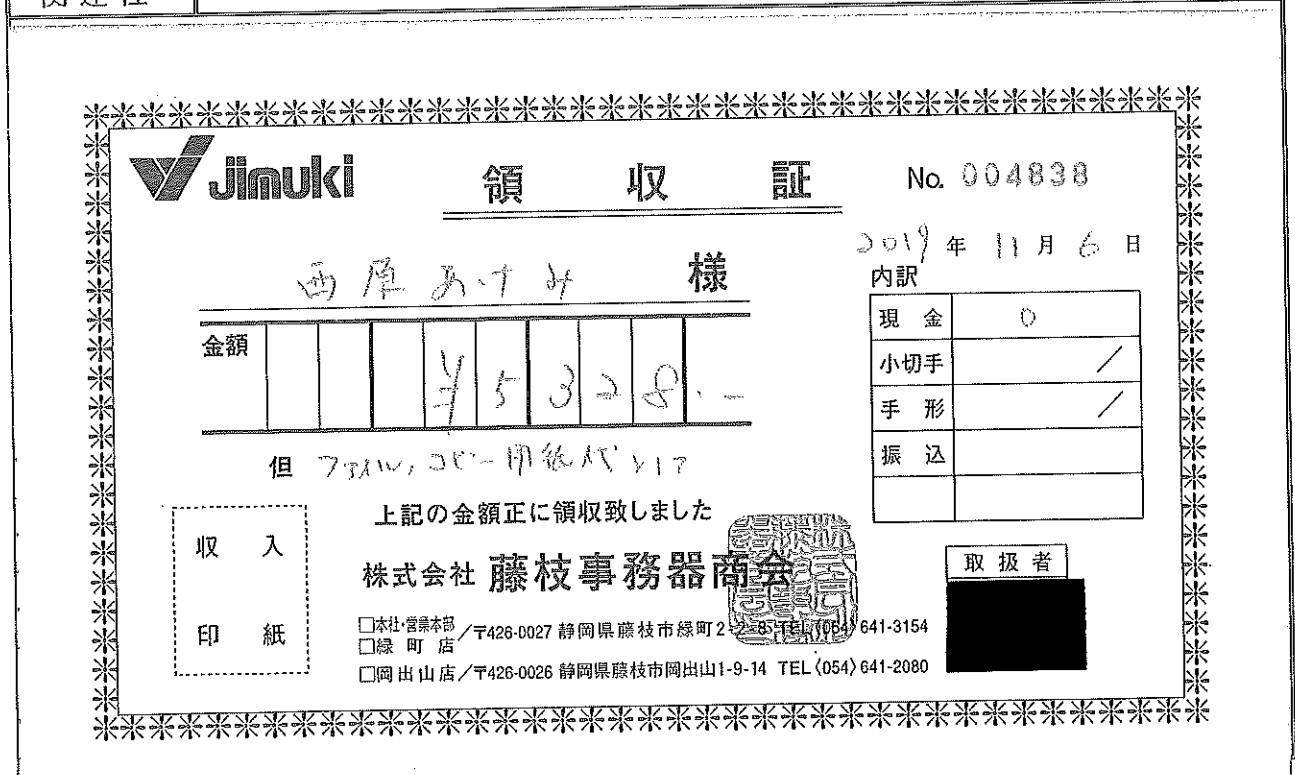 関連性
Jimuki 領収証 No. 004838
2019年11月6日
西原あけみ 様
内訳
金額 ¥5328.-
現金 0
小切手 /
手形 /
振込
但 ファイル,コピー用紙代として
上記の金額正に領収致しました
収入
印紙
株式会社 藤枝事務器商会
取扱者
□本社・営業本部
□緑町店 /〒426-0027 静岡県藤枝市緑町2-2-8 TEL(054)641-3154
□岡出山店/〒426-0026 静岡県藤枝市岡出山1-9-14 TEL(054)641-2080